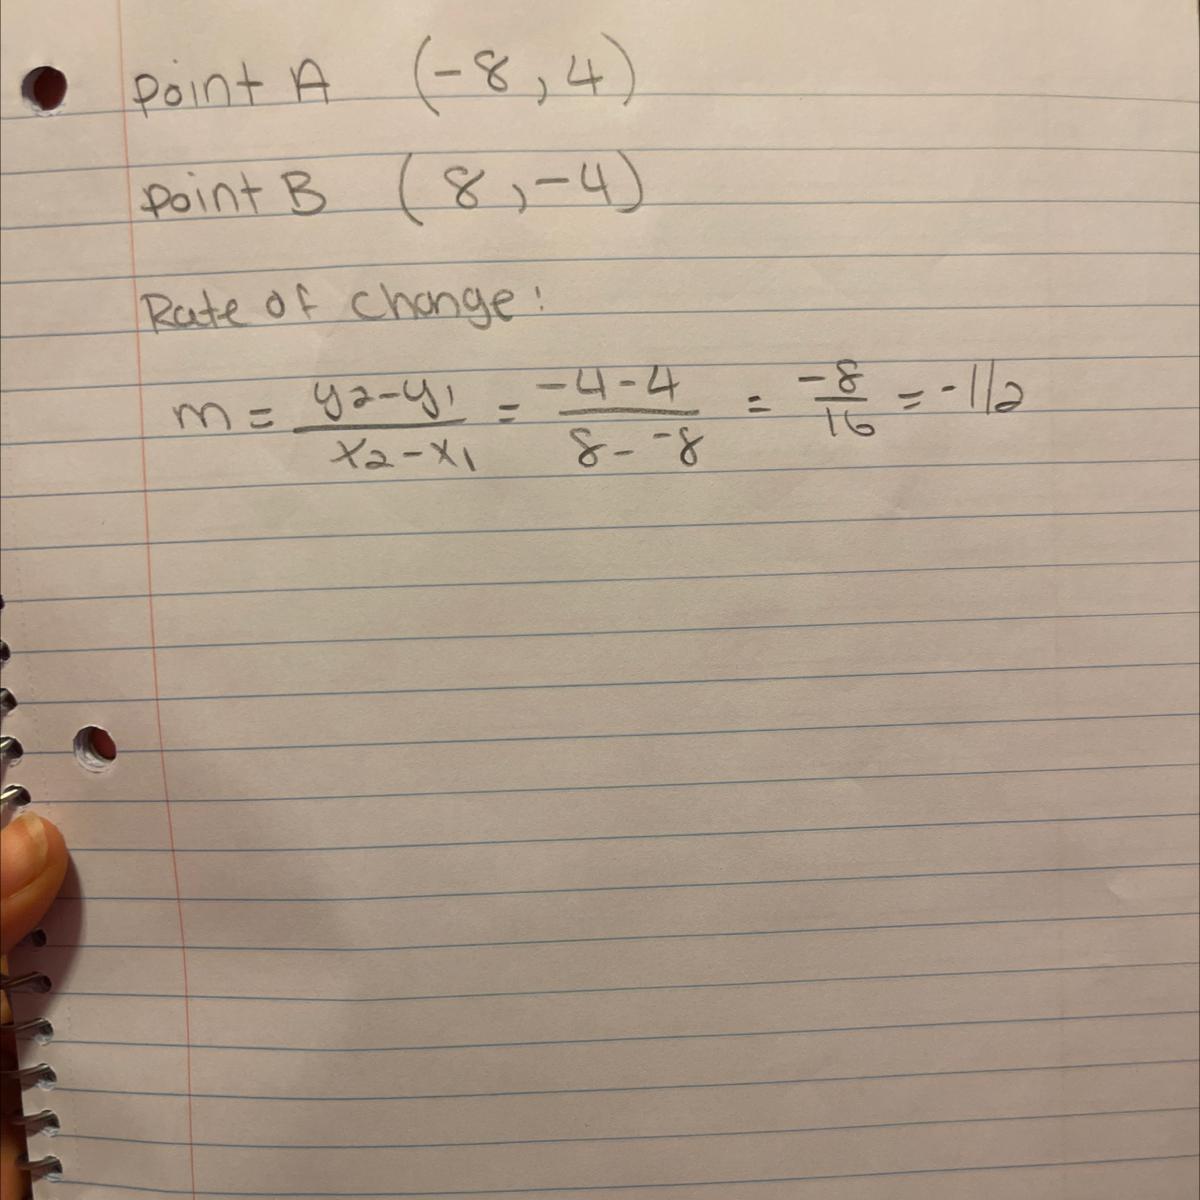 Point A (-8, 4)
Point B (8, -4)
Rate of change:
m = y2-y1/x2-x1 = -4-4/8--8 = -8/16 = -1/2